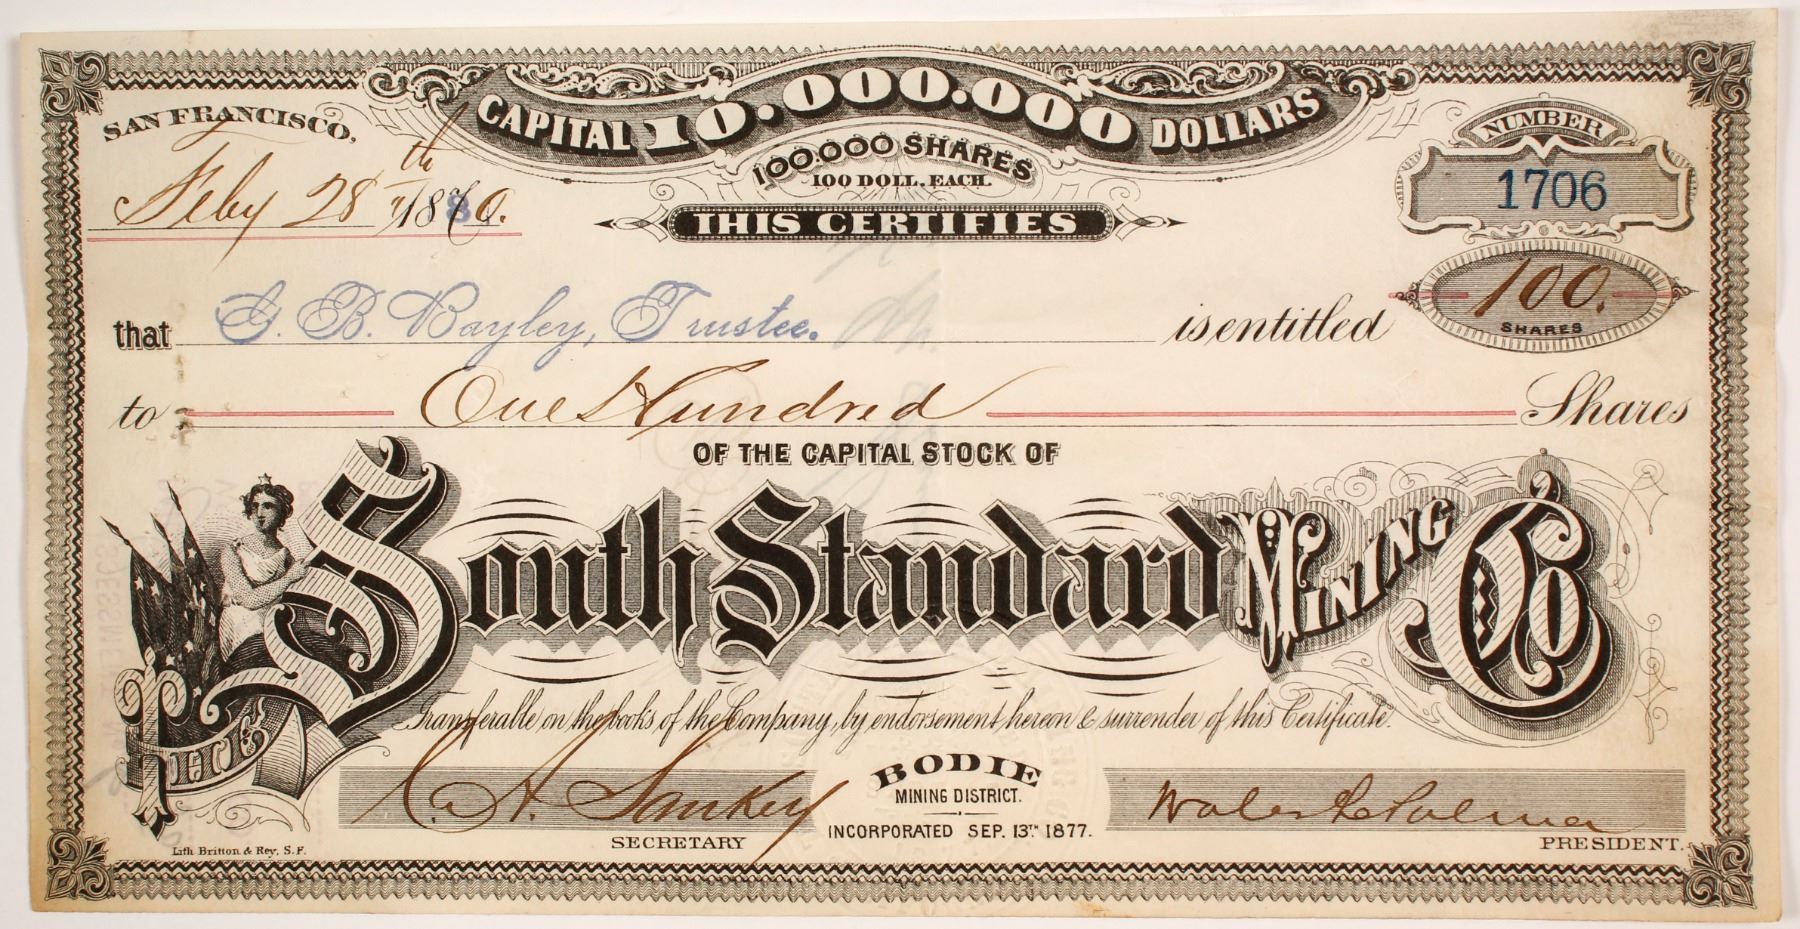 CAPITAL 10.000.000 DOLLARS
SAN FRANCISCO,
Feby 28th 1880.
100.000 SHARES
100 DOLL. EACH.
24
NUMBER
1706
THIS CERTIFIES
that G. B. Bayley, Trustee. is entitled
100.
SHARES
to One Hundred Shares
OF THE CAPITAL STOCK OF
THE South Standard MINING Co
Transferable on the books of the Company, by endorsement hereon & surrender of this Certificate.
BODIE
MINING DISTRICT.
INCORPORATED SEP. 13TH 1877.
SECRETARY
PRESIDENT.
Lith Britton & Rey, S.F.